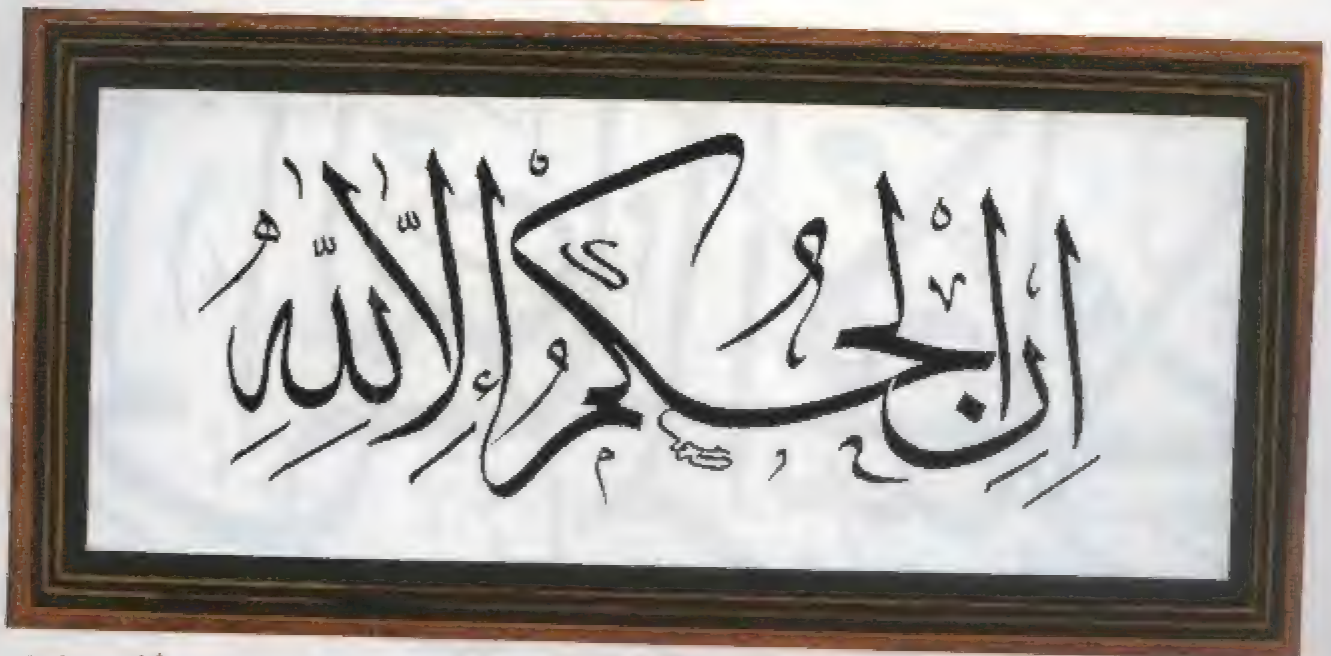 إِنِ الْحُكْمُ إِلَّا لِلَّهِ